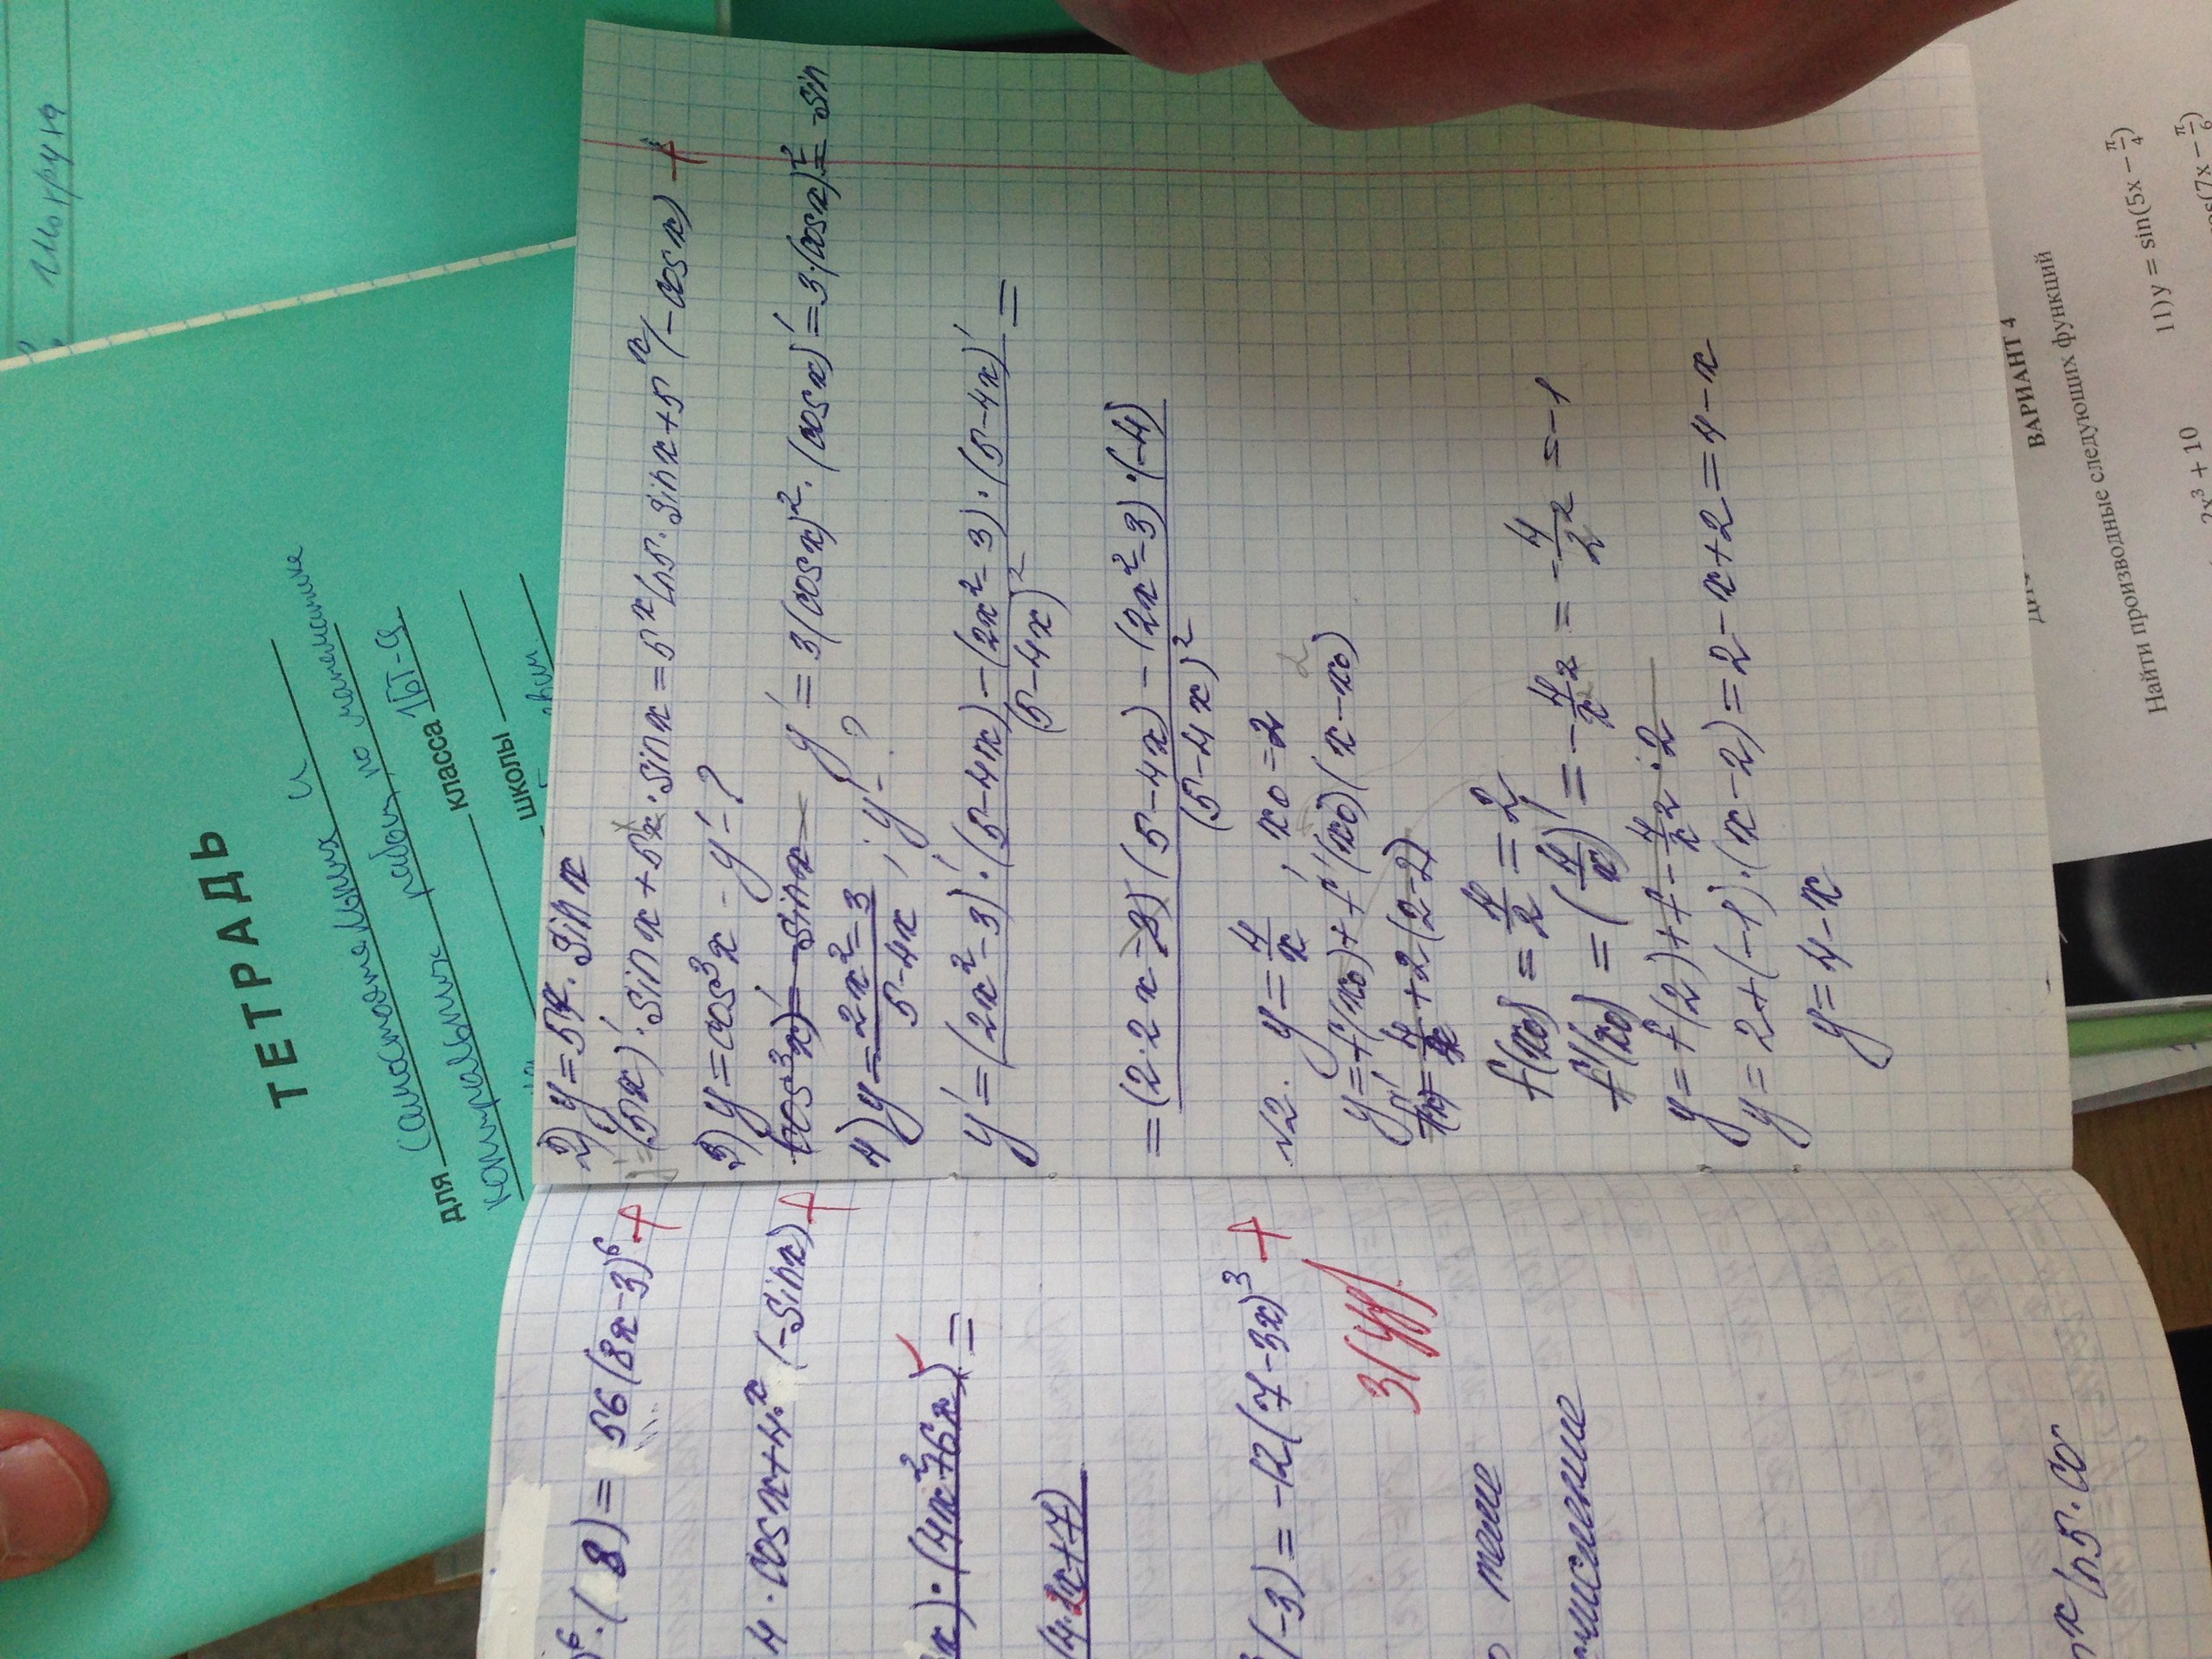 ТЕТРАДЬ
для самостоятельных и
контрольных работ по математике
класса 1БТ-9
школы
2) y = 5x · sin x
y' = (5x)' · sin x + 5x · sin x = 5^x ln5 · sin x + 5^x (-cos x) +
3) y = cos³x - y' - ?
(cos³x)' = - sin x y' = 3(cos x)² · (cos x)' = 3·(cos x)² = -sin
4) y = 2x² - 3 / 5 - 4x ; y' - ?
y' = (2x² - 3)' · (5 - 4x) - (2x² - 3) · (5 - 4x)' / (5 - 4x)² =
= (2·2x - 3) (5 - 4x) - (2x² - 3) · (-4) / (5 - 4x)²
№2. y = 4/x , x0 = 2
y = f(x0) + f'(x0)(x - x0)
+ 2 (2 - 2)
f(x0) = 4/2 = 2
f'(x0) = (4/x)' = - 4/x² = - 4/2² = -1
y = f(2) + f - 4/x² · 2
y = 2 + (-1) · (x - 2) = 2 - x + 2 = 4 - x
y = 4 - x
6 · (8) = 56 (8x - 3)⁶ +
4 · cos x + 4^x (-sin x) +
x) · (4x² + 6x) =
(4·2x + 7)
(-3) = -12 (7 - 3x)³ +
x ln5 · co
ВАРИАНТ 4
Найти производные следующих функций
2x³ + 10
11) y = sin(5x - π/4)
s(7x - π/6)